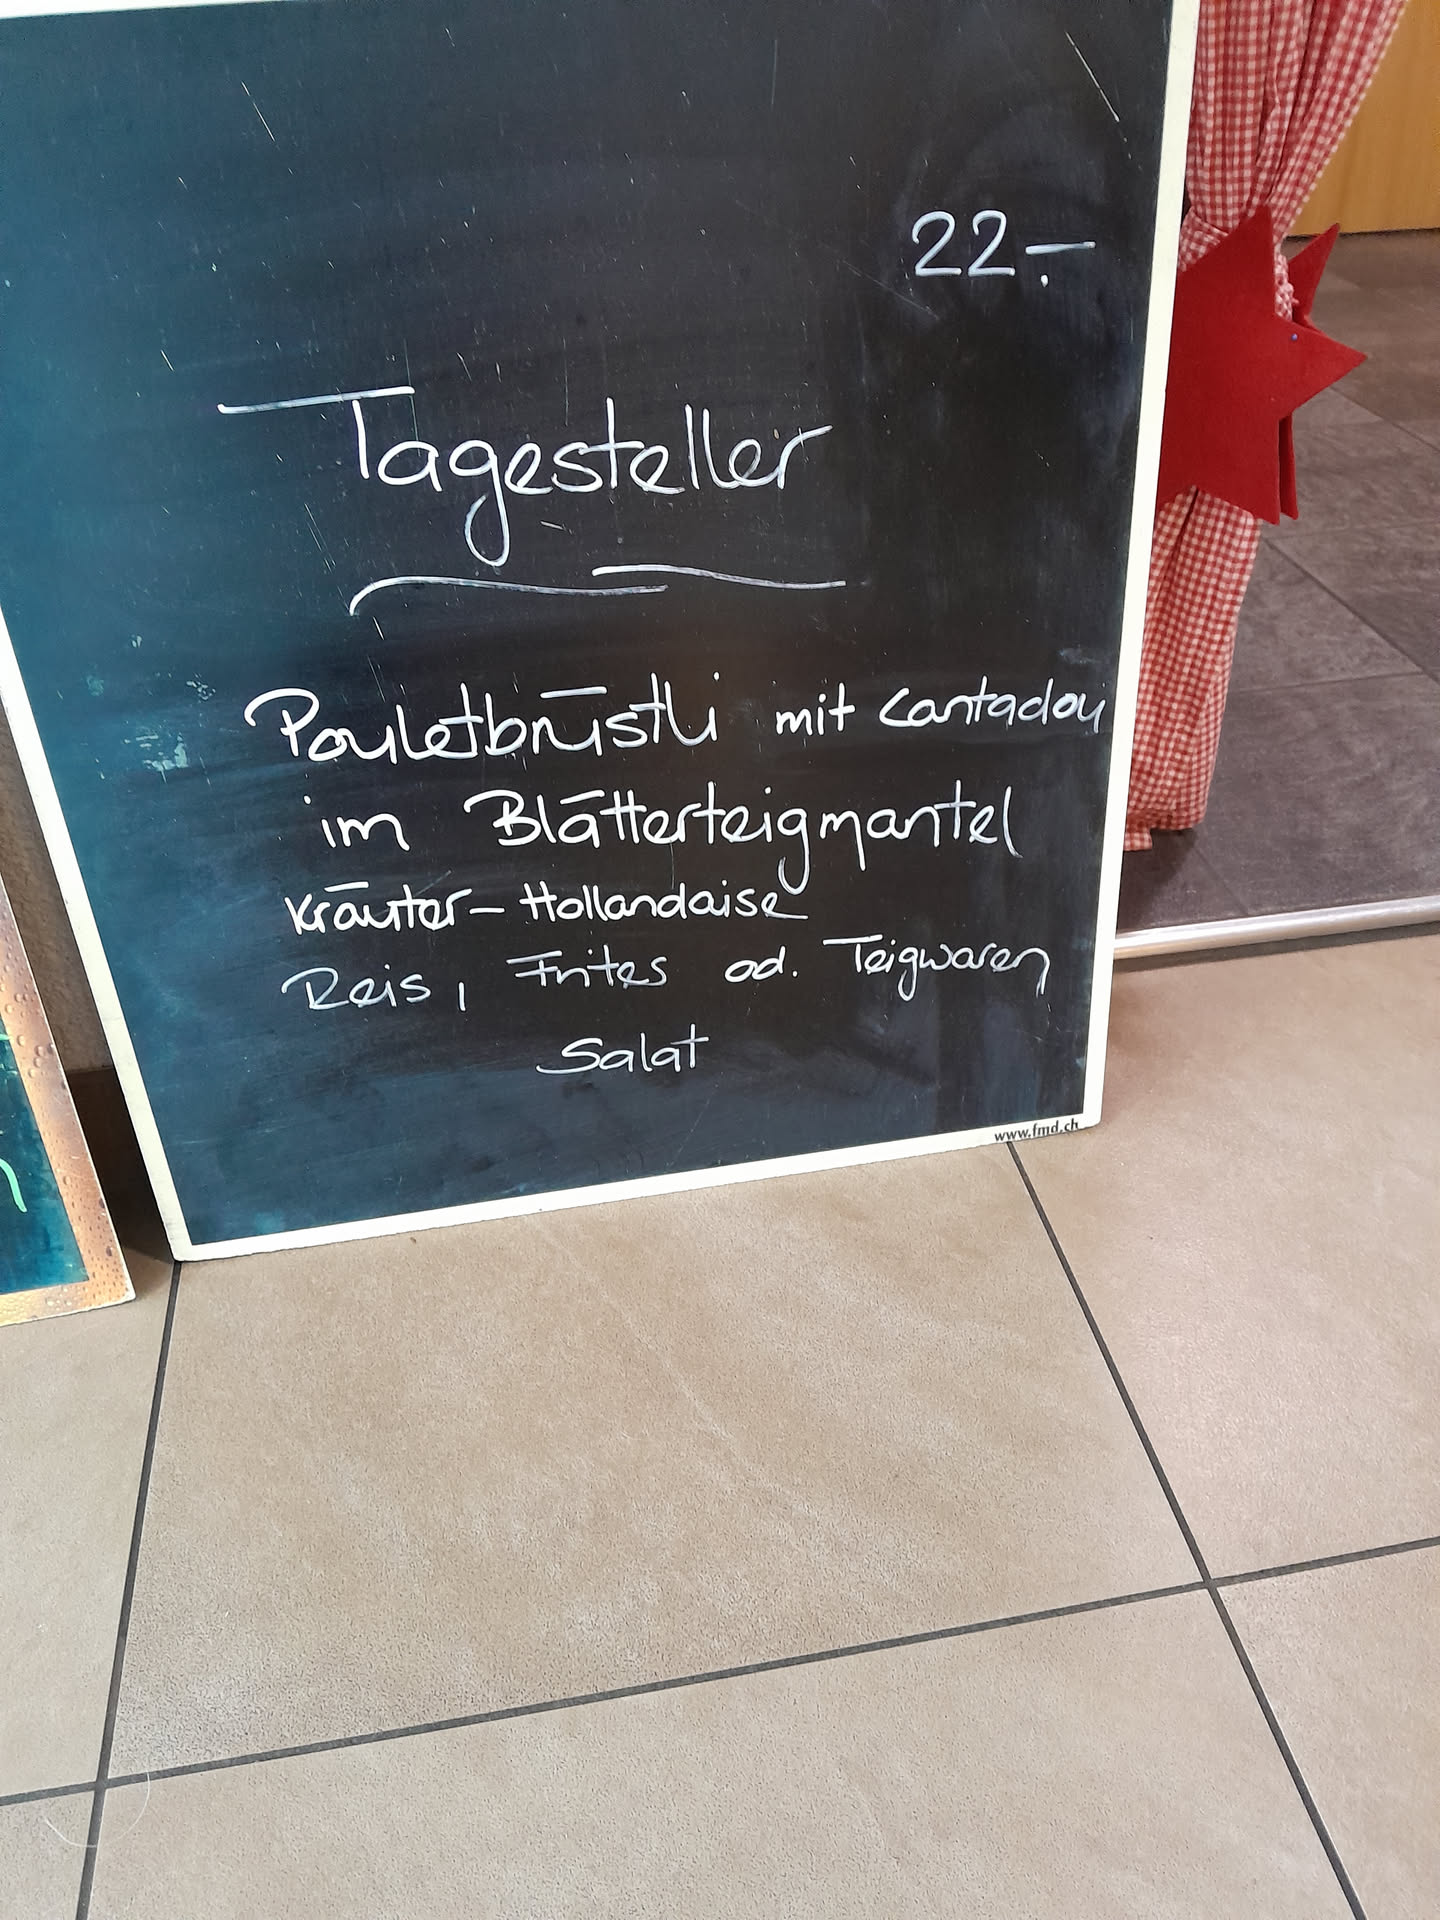 22.-
Tagesteller
Pouletbrüstli mit Cantadou
im Blätterteigmantel
Kräuter-Hollandaise
Reis, Frites od. Teigwaren
Salat
www.fmd.ch